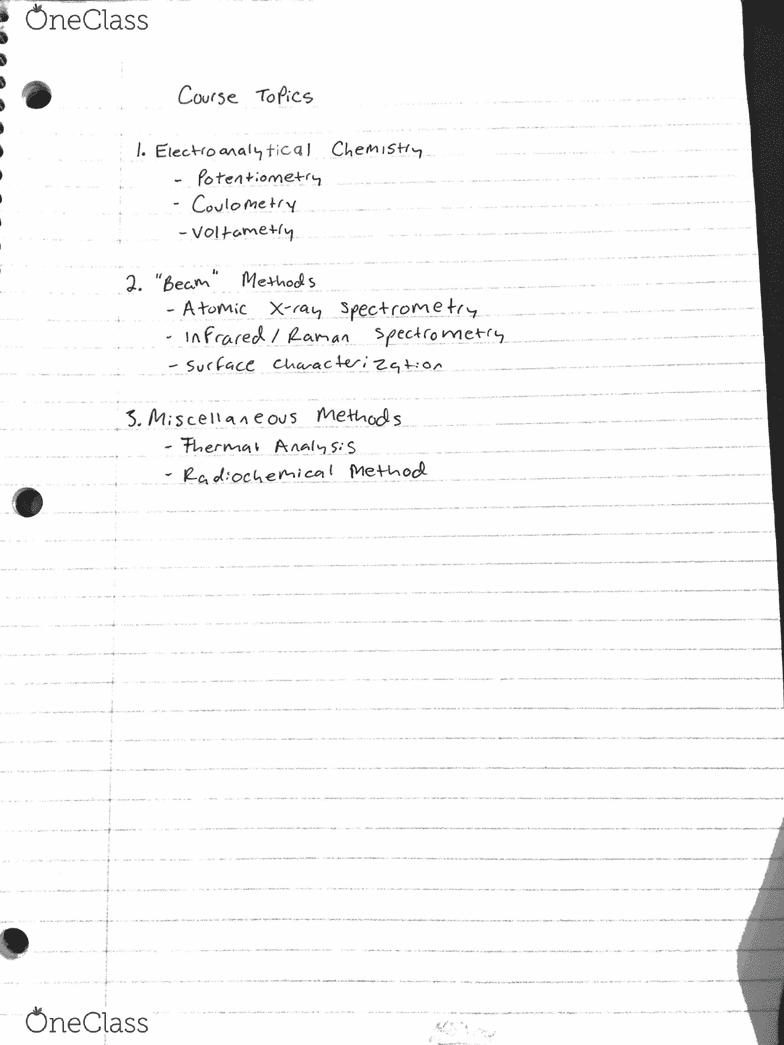 OneClass
Course Topics
1. Electroanalytical Chemistry
- Potentiometry
- Coulometry
- Voltametry
2. "Beam" Methods
- Atomic X-ray Spectrometry
- Infrared / Raman Spectrometry
- Surface Characterization
3. Miscellaneous Methods
- Thermal Analysis
- Radiochemical Method
OneClass